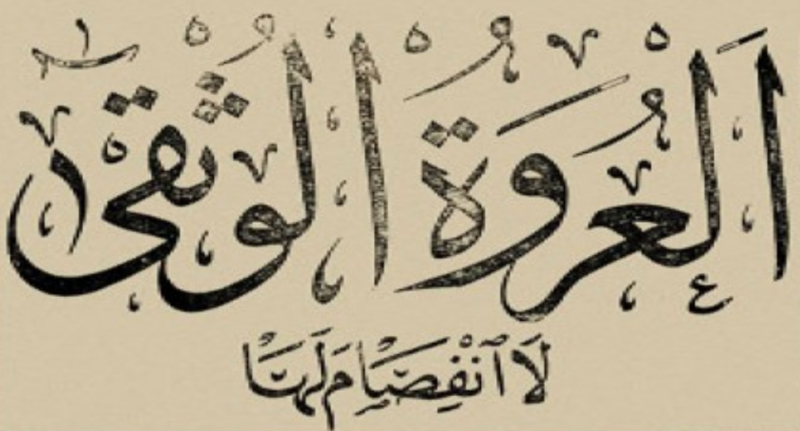 العُرْوَةُ الْوُثْقَىٰ
لَا انْفِصَامَ لَهَا